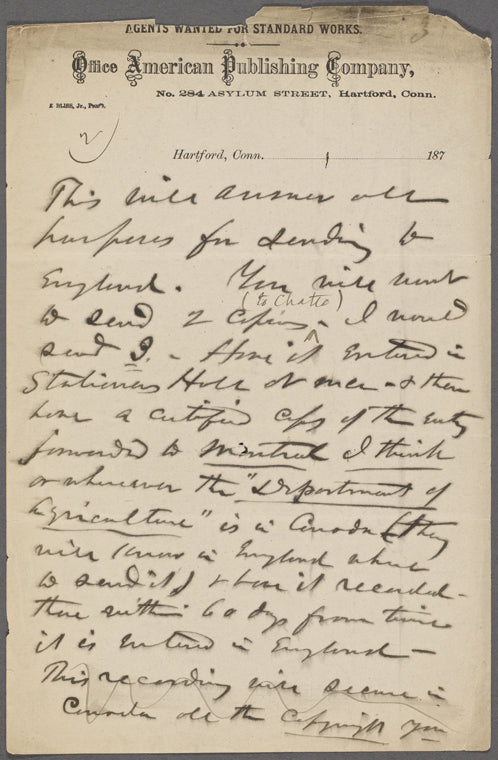 AGENTS WANTED FOR STANDARD WORKS.
Office American Publishing Company,
No. 284 ASYLUM STREET, Hartford, Conn.
E BLISS, Jr., Pres't.
2
Hartford, Conn. 187
This will answer all
purposes for sending to
England. You will want
(to Chatto)
to send 2 copies - I would
send 3. - Have it entered in
Stationers Hall at once - & then
have a certified copy of the entry
forwarded to Montreal I think
or wherever the "Department of
Agriculture" is in Canada (they
will know in England where
to send it) & have it recorded -
there within 60 days from time
it is entered in England -
This recording will secure in
Canada all the copyright you